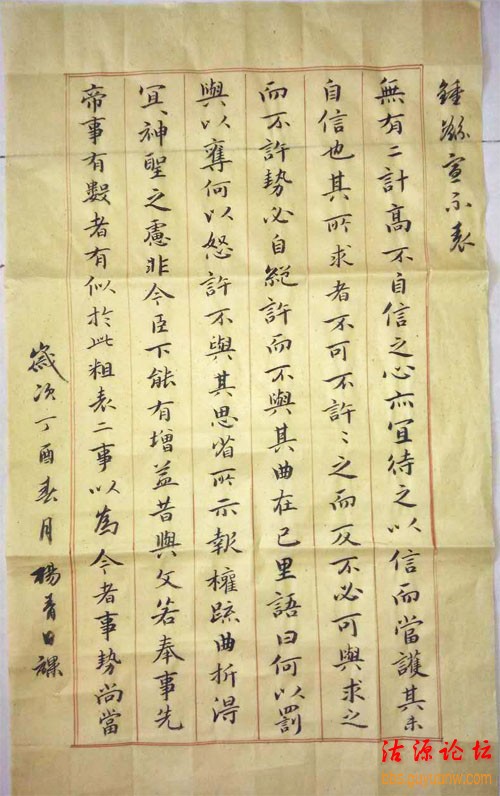 鍾繇宣示表
無有二計高不自信之心亦宜待之以信而當護其未
自信也其所求者不可不許〻之而反不必可與求之
而不許勢必自絕許而不與其曲在己里語曰何以罰
與以奪何以怒許不與其思省所示報權疏曲折得
宜〻神聖之慮非今臣下能有增益昔與文若奉事先
帝事有數者有似於此粗表二事以為今者事勢尚當
歲次丁酉春月楊青日課
沽源论坛